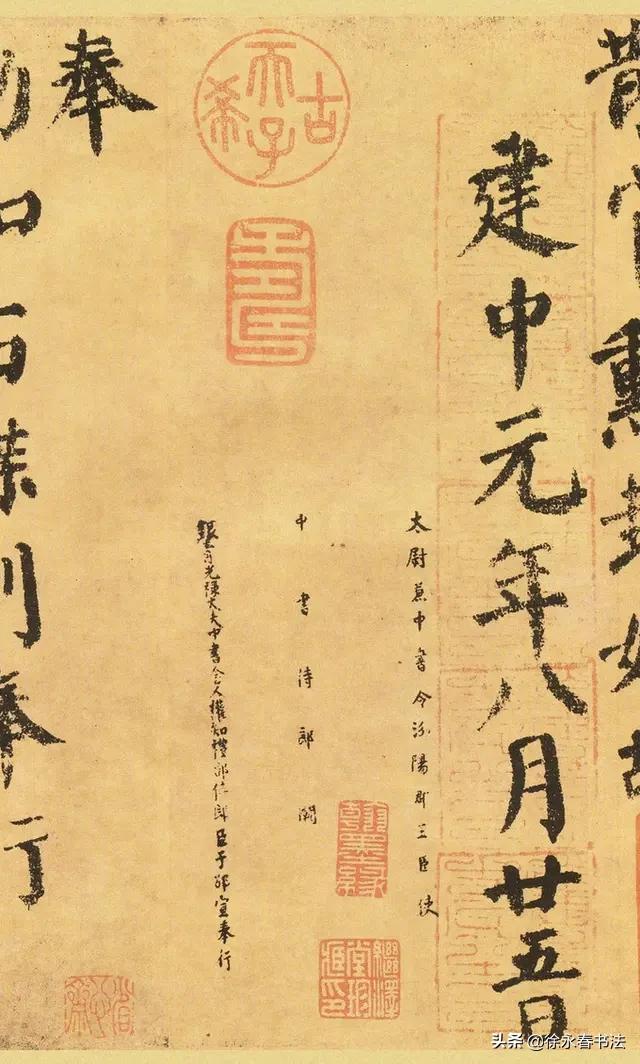 散官勳封如故
建中元年八月廿五日
太尉兼中書令汾陽郡王臣使
中書侍郎闕
銀青光祿大夫中書舍人權知禮部侍郎臣于邵宣奉行
古希天子
壽
奉
勑如右牒到奉行
头条 @徐永春书法